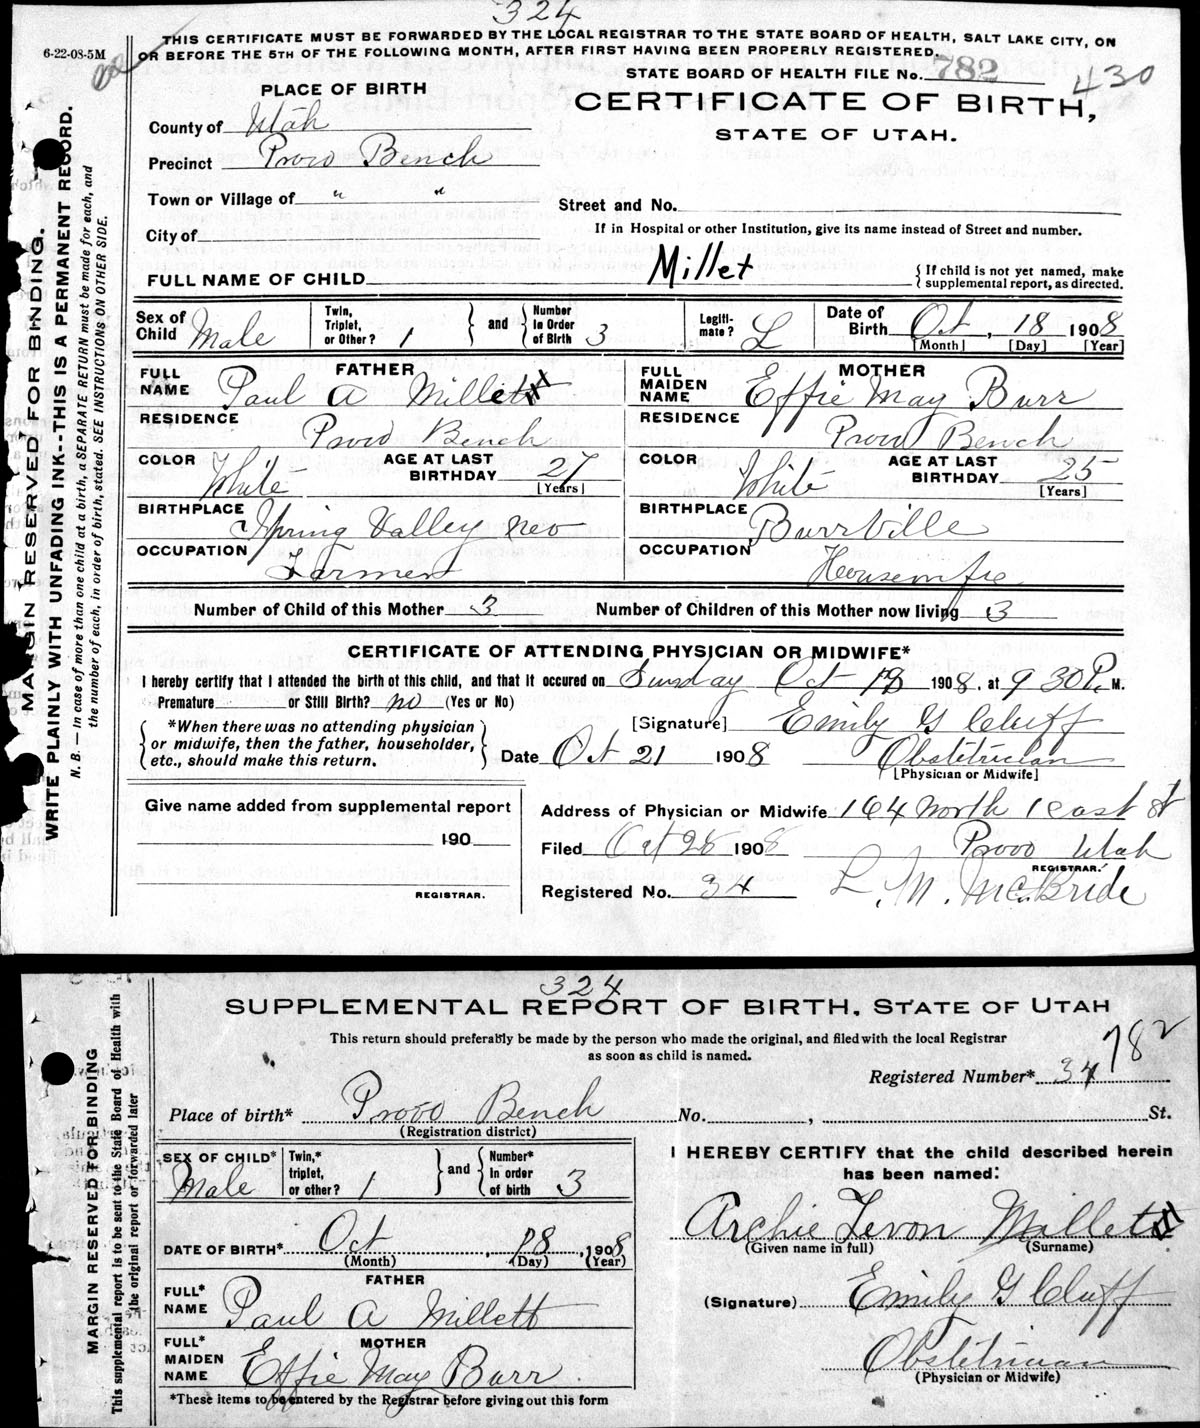 324
6-22-08-5M
THIS CERTIFICATE MUST BE FORWARDED BY THE LOCAL REGISTRAR TO THE STATE BOARD OF HEALTH, SALT LAKE CITY, ON
OR BEFORE THE 5TH OF THE FOLLOWING MONTH, AFTER FIRST HAVING BEEN PROPERLY REGISTERED.
STATE BOARD OF HEALTH FILE No. 782
430
PLACE OF BIRTH
CERTIFICATE OF BIRTH,
STATE OF UTAH.
County of Utah
Precinct Provo Bench
Town or Village of " "
Street and No.
City of
If in Hospital or other Institution, give its name instead of Street and number.
FULL NAME OF CHILD Millet
{ If child is not yet named, make
supplemental report, as directed.
Sex of Child Male
Twin, Triplet, or Other? 1 } and { Number in Order of Birth 3
Legiti-mate? L
Date of Birth Oct, 18 1908
[Month] [Day] [Year]
FATHER
FULL NAME Paul A Millett
MOTHER
FULL MAIDEN NAME Effie May Burr
RESIDENCE Provo Bench
RESIDENCE Provo Bench
COLOR White AGE AT LAST BIRTHDAY 27 [Years]
COLOR White AGE AT LAST BIRTHDAY 25 [Years]
BIRTHPLACE Spring Valley Nev
BIRTHPLACE Burrville
OCCUPATION Farmer
OCCUPATION Housewife
Number of Child of this Mother 3
Number of Children of this Mother now living 3
CERTIFICATE OF ATTENDING PHYSICIAN OR MIDWIFE*
I hereby certify that I attended the birth of this child, and that it occured on Sunday Oct 18 1908, at 9 30 P. M.
Premature or Still Birth? no (Yes or No)
{ *When there was no attending physician
or midwife, then the father, householder,
etc., should make this return. }
[Signature] Emily G Cluff
Date Oct 21 1908 Obstetrician
[Physician or Midwife]
Give name added from supplemental report
190
REGISTRAR.
Address of Physician or Midwife 164 North 1 east st
Filed Oct 1908 Provo Utah
REGISTRAR.
Registered No. 34 L. M. McBride
MARGIN RESERVED FOR BINDING.
WRITE PLAINLY WITH UNFADING INK--THIS IS A PERMANENT RECORD.
N. B. — In case of more than one child at a birth, a SEPARATE RETURN must be made for each, and
the number of each, in order of birth, stated. SEE INSTRUCTIONS ON OTHER SIDE.
324
SUPPLEMENTAL REPORT OF BIRTH, STATE OF UTAH
This return should preferably be made by the person who made the original, and filed with the local Registrar
as soon as child is named.
782
Registered Number* 34
Place of birth* Provo Bench No. , St.
(Registration district)
SEX OF CHILD* Male
Twin,* triplet, or other? 1 } and { Number* in order of birth 3
I HEREBY CERTIFY that the child described herein
has been named:
Archie Levon Millet
(Given name in full) (Surname)
DATE OF BIRTH* Oct, 18, 1908
(Month) (Day) (Year)
FATHER
FULL* NAME Paul A Millett
(Signature) Emily G Cluff
MOTHER
FULL* MAIDEN NAME Effie May Burr
Obstetrician
(Physician or Midwife)
*These items to be entered by the Registrar before giving out this form
MARGIN RESERVED FOR BINDING
This supplemental report is to be sent to the State Board of Health with
the original report or forwarded later